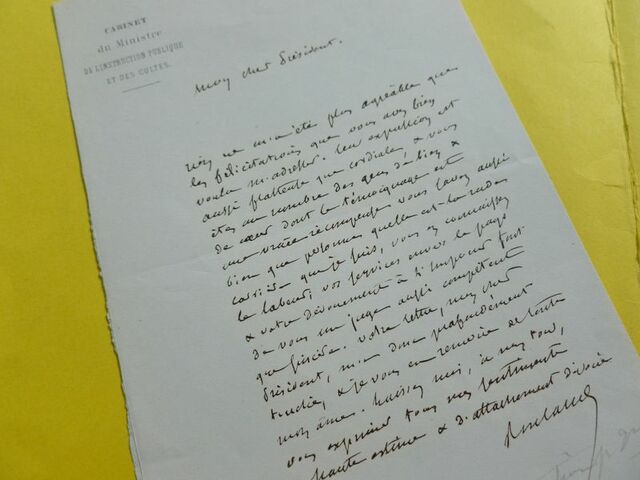 CABINET
du Ministre
DE L'INSTRUCTION PUBLIQUE
ET DES CULTES.
Mon cher Président.
Rien ne m'a été plus agréable que
les félicitations que vous avez bien
voulu m'adresser. Leur expression est
aussi flatteuse que cordiale & vous
êtes au nombre des gens de bien &
de cœur dont le témoignage est
une vraie récompense. Vous savez aussi
bien que personne quelle est la rude
carrière que je suis, vous en connaissez
le labeur; vos services envers le pays
& votre dévouement à l'Empereur font
de vous un juge aussi compétent
que sincère. Votre lettre, mon cher
Président, m'a donc profondément
touché, & je vous en remercie de toute
mon âme. Laissez moi, à mon tour,
vous exprimer tous mes sentiments
haute estime & d'attachement